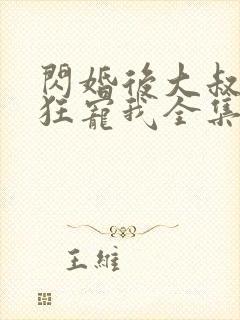 閃婚後大叔
狂寵我全集
王維